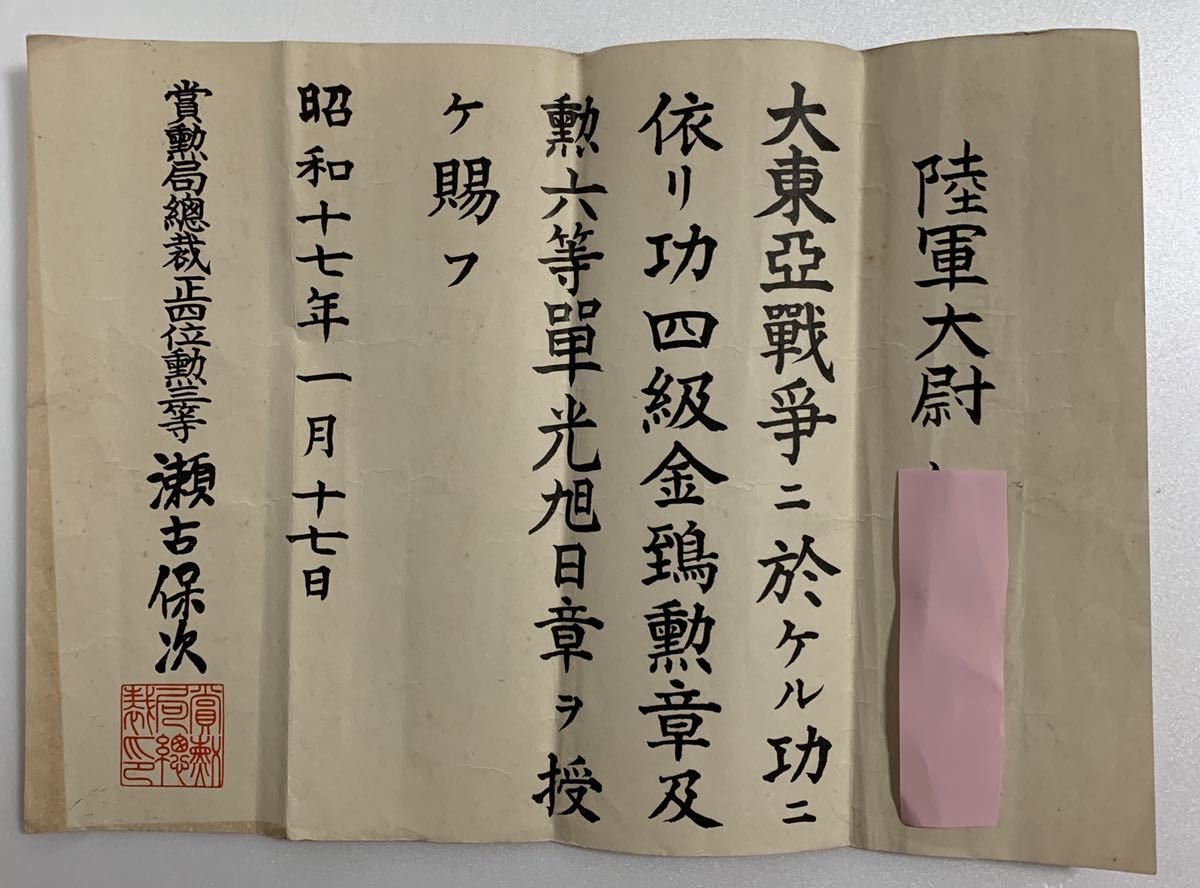 陸軍大尉
大東亞戰爭ニ於ケル功ニ
依リ功四級金鵄勲章及
勲六等單光旭日章ヲ授
ケ賜フ
昭和十七年一月十七日
賞勲局總裁正四位勲三等瀬古保次
賞勲
局總
裁印